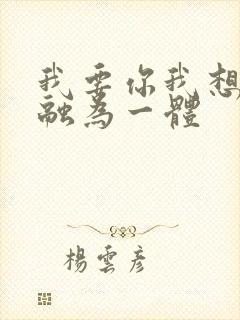 我要你我想
融為一體
楊雲彥